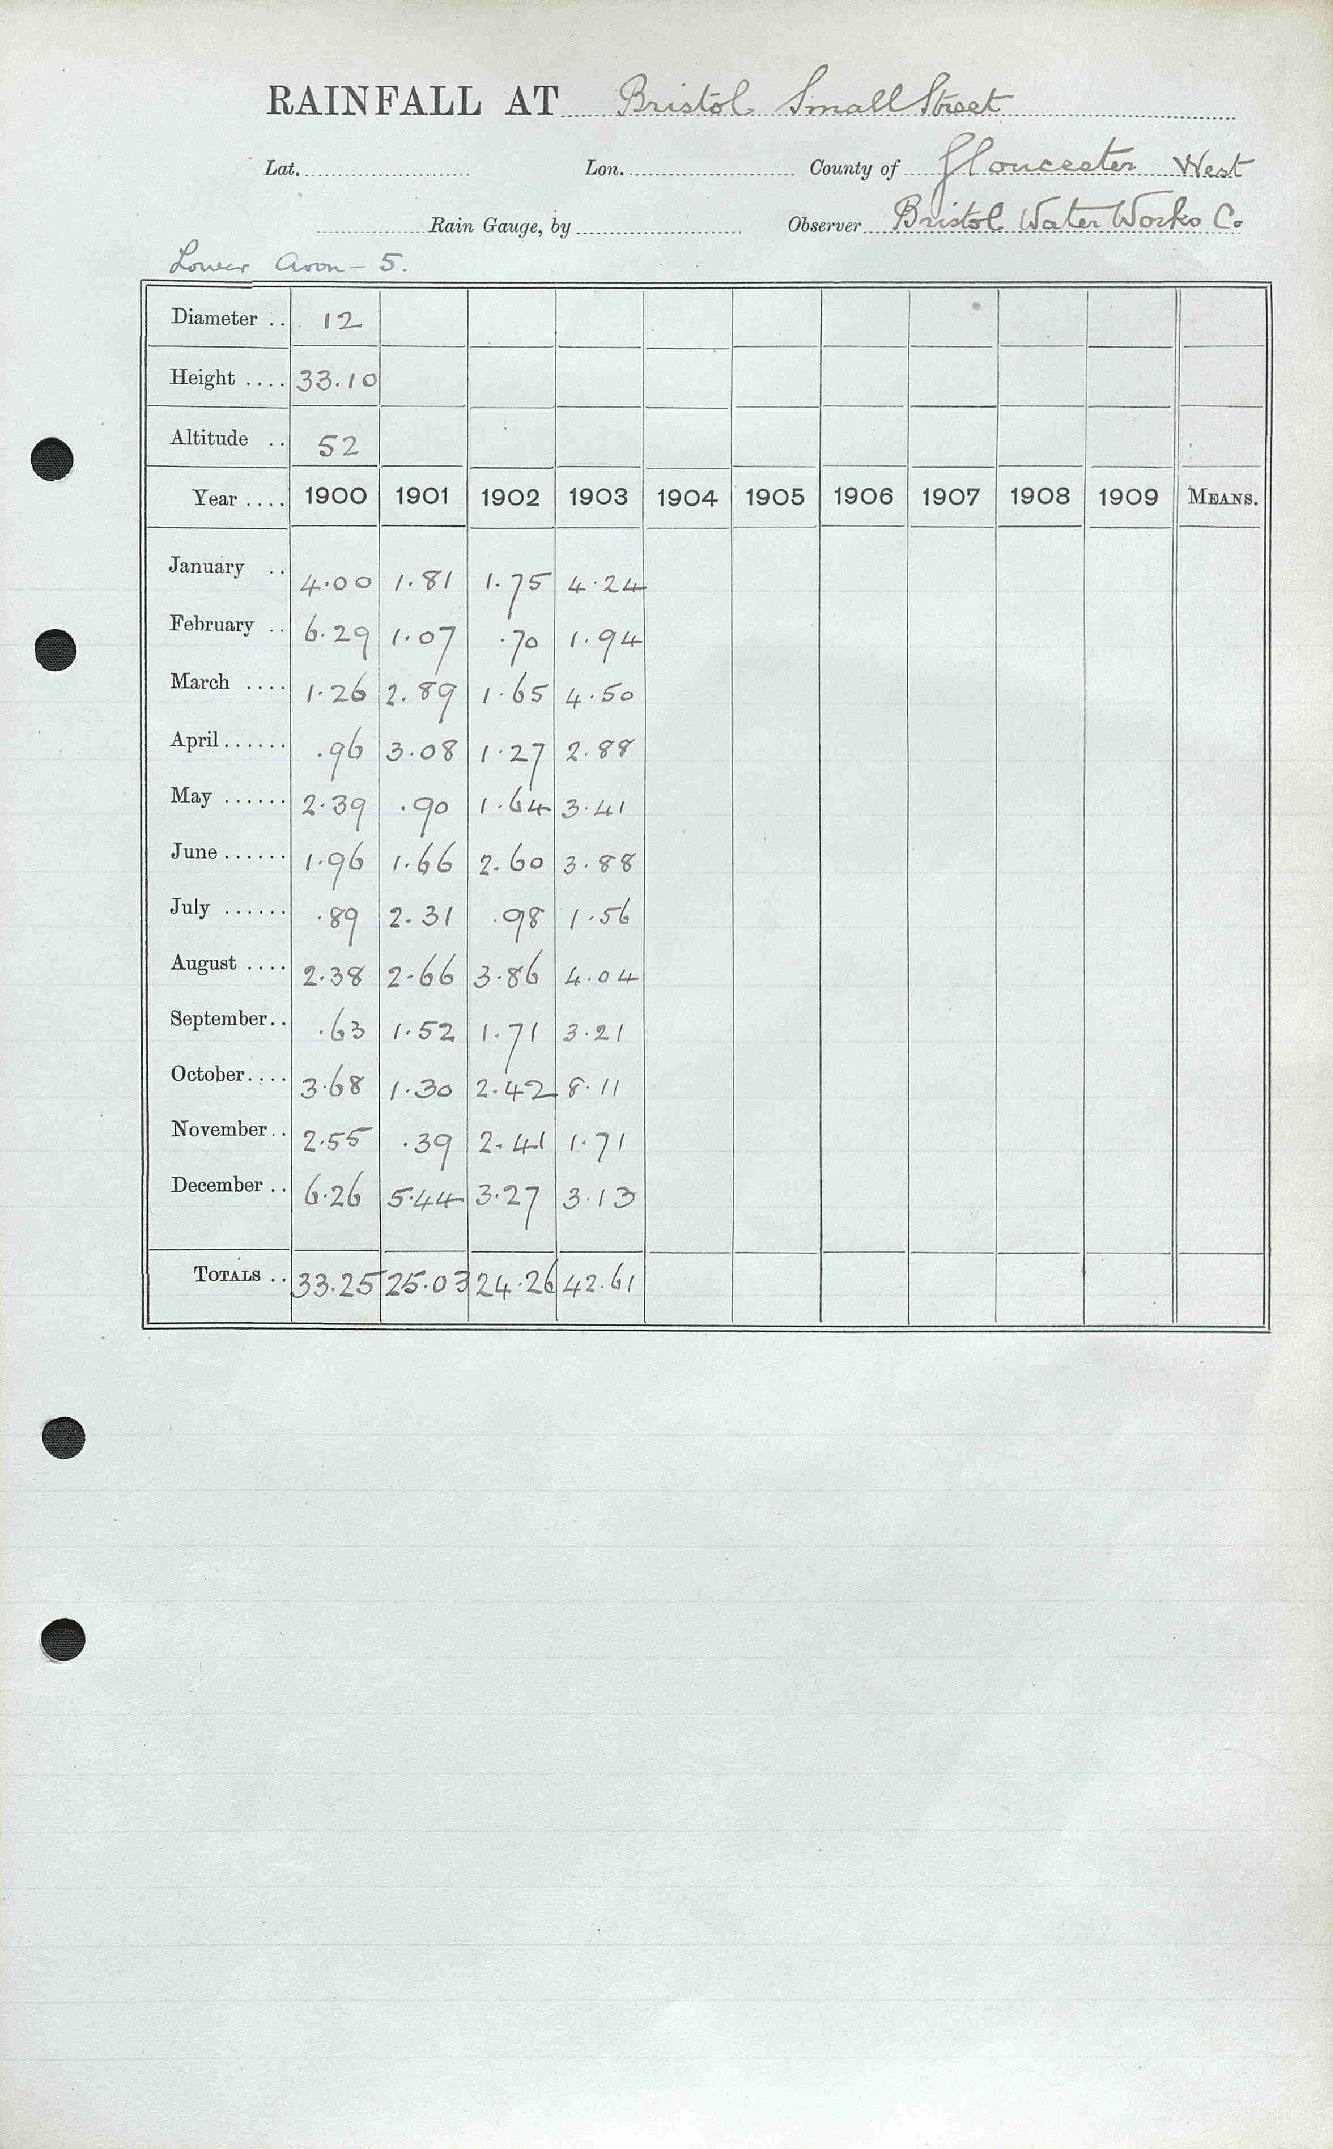 RAINFALL AT Bristol Small Street
Lat. Lon. County of Gloucester West
Rain Gauge, by Observer Bristol Water Works Co
Lower Avon - 5.
Diameter .. 12
Height .... 33.10
Altitude .. 52
Year .... 1900 1901 1902 1903 1904 1905 1906 1907 1908 1909 MEANS.
January .. 4.00 1.81 1.75 4.24
February .. 6.29 1.07 .70 1.94
March .... 1.26 2.89 1.65 4.50
April ...... .96 3.08 1.27 2.88
May ...... 2.39 .90 1.64 3.41
June ...... 1.96 1.66 2.60 3.88
July ...... .89 2.31 .98 1.56
August .... 2.38 2.66 3.86 4.04
September.. .63 1.52 1.71 3.21
October.... 3.68 1.30 2.42 8.11
November.. 2.55 .39 2.41 1.71
December .. 6.26 5.44 3.27 3.13
TOTALS .. 33.25 25.03 24.26 42.61